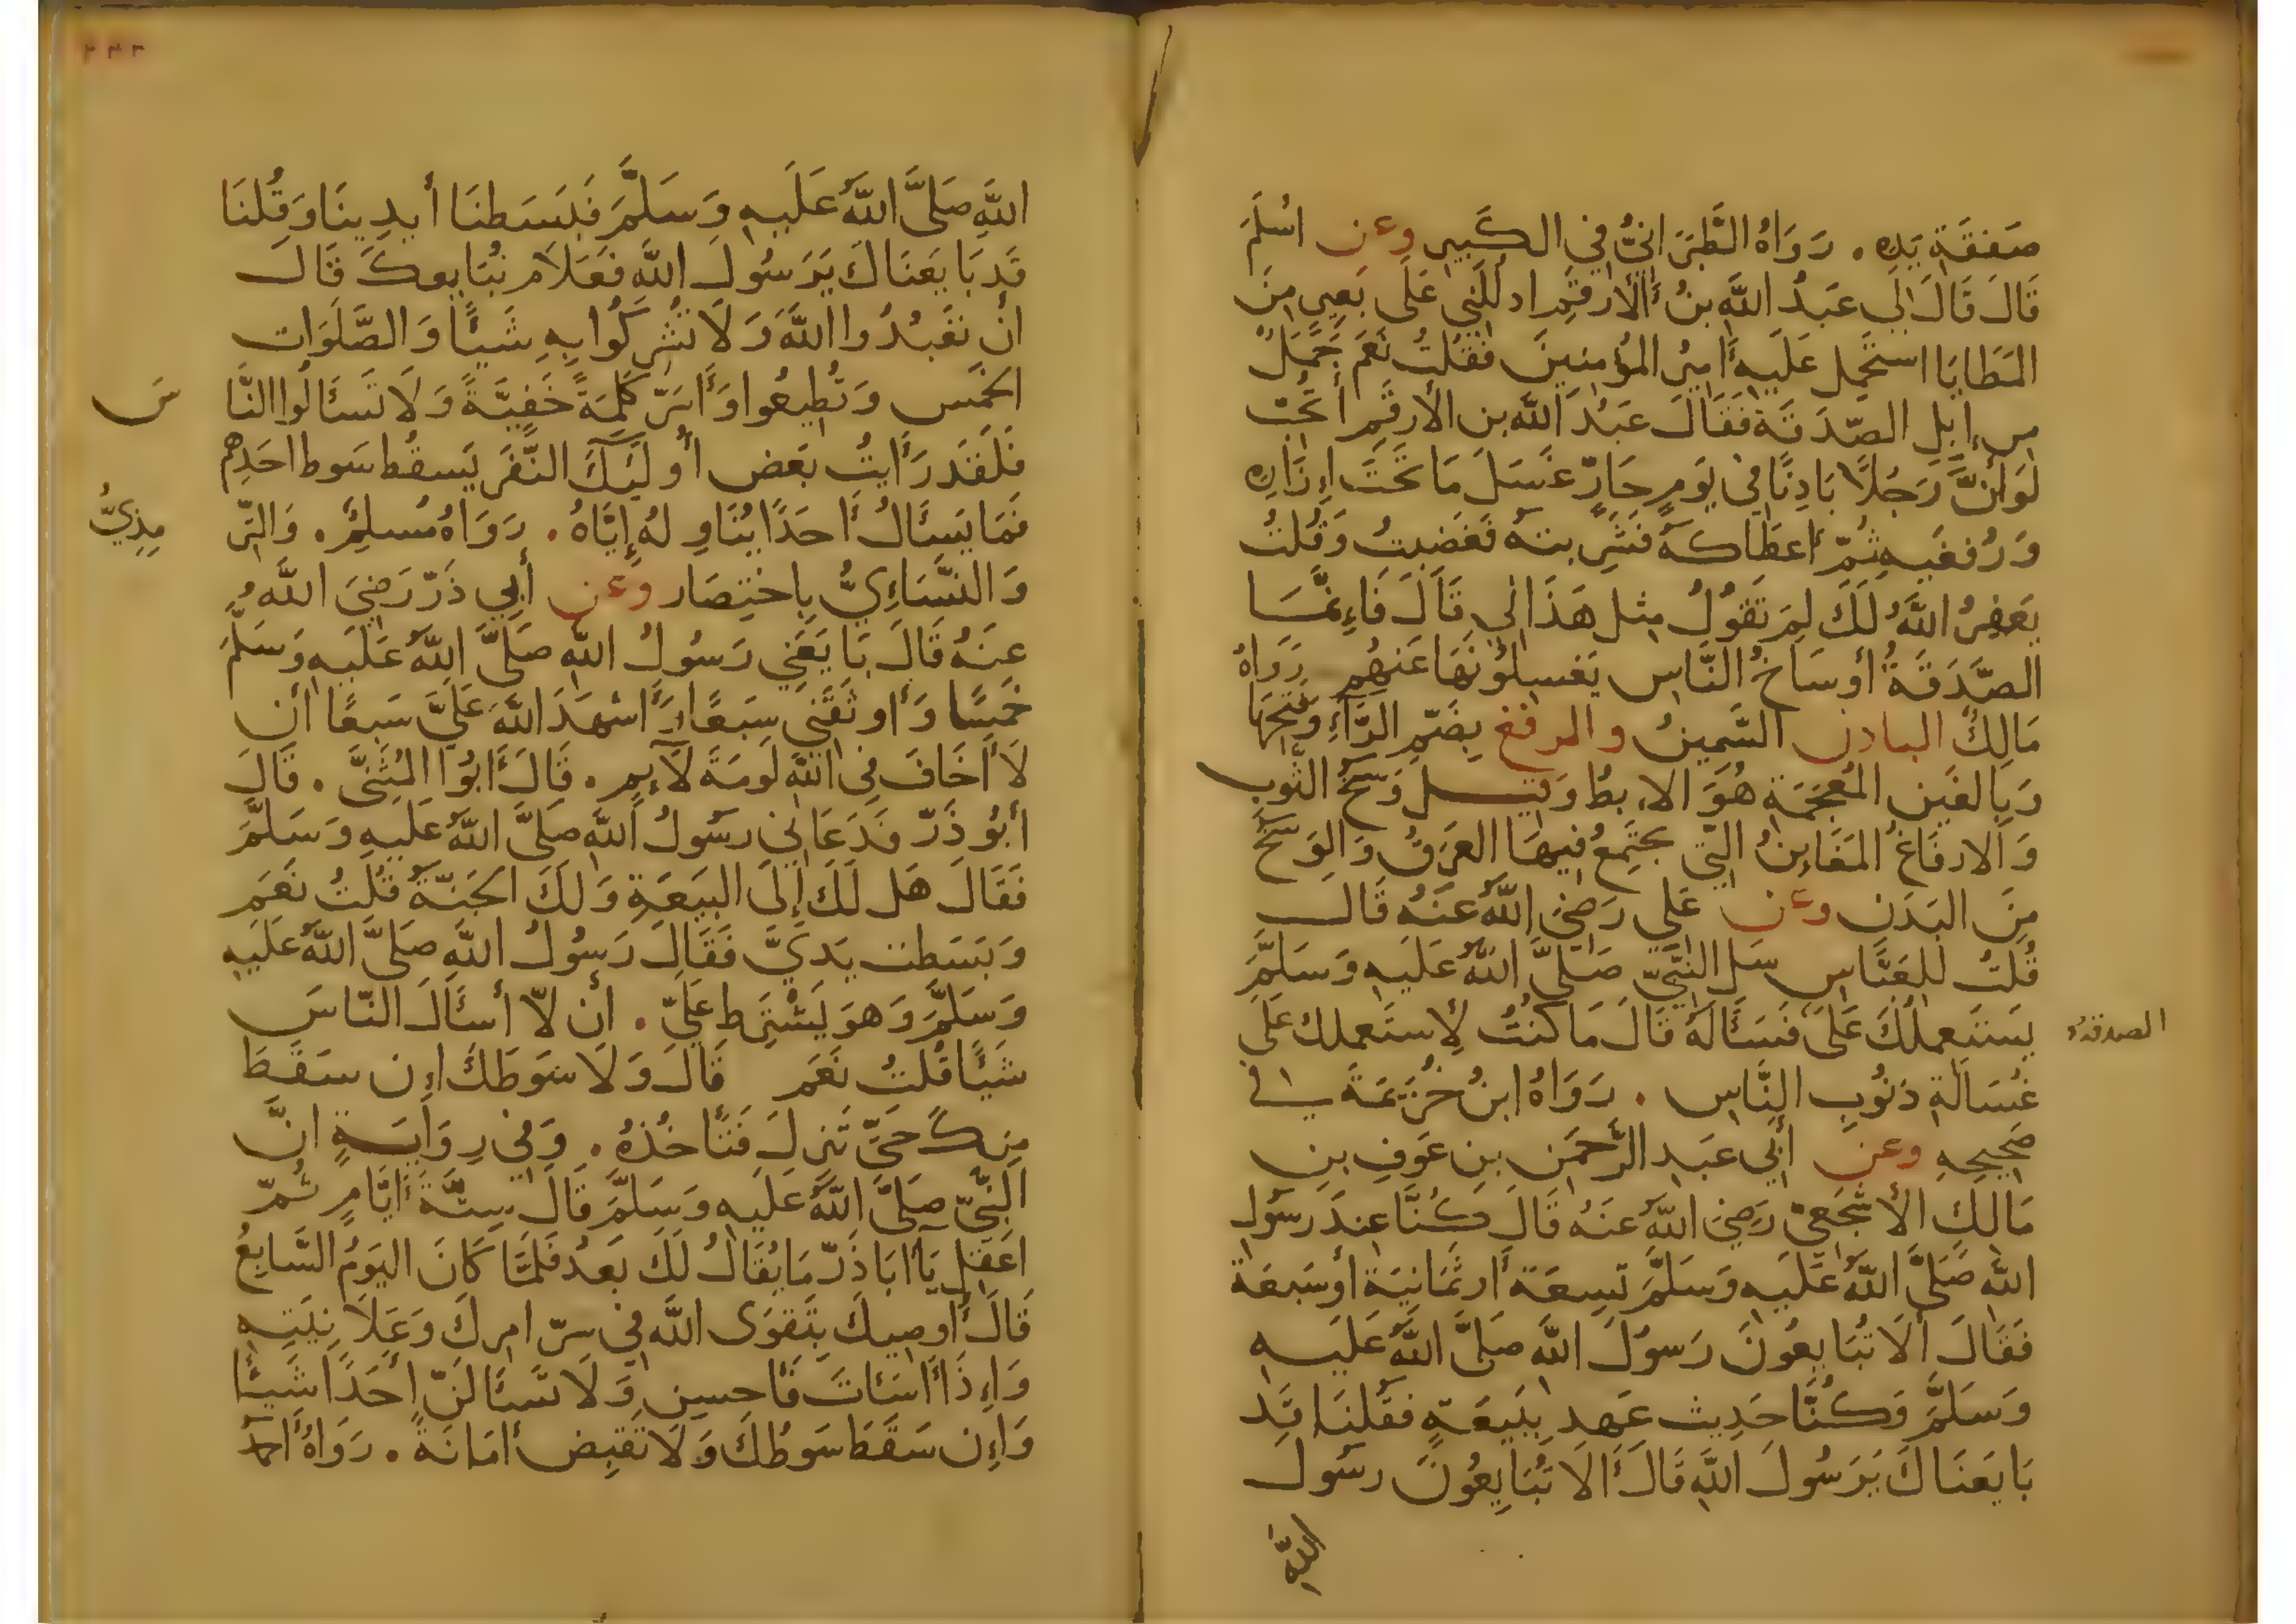 صَفقَةِ يَدِهِ . رَوَاهُ الطَّبَرَانِيُّ فِي الكَبِيرِ وعن اسْلَمَ
قَالَ قَالَ لِي عَبدُ اللَّهِ بنُ الأَرقَمِ ادلُلنِي عَلَى بَعِيرٍ مِنَ
المَطَايَا استَحمِل عَلَيهِ أَمِيرُ المُؤمِنِينَ فَقُلتُ نَعَم جَمَلٌ
مِن إِبِلِ الصّدَقَة فَقَالَ عَبدُ اللَّه بن الأَرقَمِ أَتُحِبّ
لَو أَنَّ رَجُلًا بَادِنًا فِي يَومٍ حَارٍّ غَسَلَ مَا تَحتَ إِزَارِهِ
وَرُفغَيهِ ثُمّ أَعطَاكَهُ فَشَرِبتَهُ فَغَضِبتُ وَقُلتُ
يَغفِرُ اللَّهُ لَكَ لِمَ تَقُولُ مِثل هَذَا لِي قَالَ فَإِنَّمَا
الصَّدَقَةُ أَوسَاخُ النَّاسِ يَغسِلُونَهَا عَنهُم رَوَاهُ
مَالِكٌ البادن السَّمِينُ والرفغ بِضَمّ الرَّاءِ وَفَتحِهَا
وَبِالغَينِ المُعجَمَةِ هُوَ الاِبطُ وَقِيل وَسَخُ الثَّوب
وَالارفَاغُ المَغَابِنُ الَّتِي يَجتَمِعُ فِيهَا العَرَقُ وَالوَسَخُ
مِنَ البَدَنِ وعن عَلي رَضِيَ اللَّهُ عَنهُ قَال
قُلتُ لِلعَبَّاسِ سَلِ النَّبِيّ صَلَّى اللَّهُ عَلَيهِ وَسَلَّمَ
يَستَعمِلُكَ عَلَى الصدقة فَسَأَلَهُ قَالَ مَا كُنتُ لِأَستَعمِلك عَلَى
غُسَالَةِ ذنُوبِ النَّاسِ . رَوَاهُ ابنُ خُزَيمَةَ في
صَحِيحِهِ وعن أَبِي عَبدِ الرَّحمَنِ بنِ عَوفِ بنِ
مَالِكٍ الأَشجَعِيّ رَضِيَ اللَّهُ عَنهُ قَالَ كُنَّا عِندَ رَسُولِ
اللَّهِ صَلَّى اللَّهُ عَلَيهِ وَسَلَّمَ تِسعَة أَو ثَمَانِيَة أَو سَبعَة
فَقَالَ أَلَا تُبَايِعُونَ رَسُولَ اللَّهِ صَلَّى اللَّهُ عَلَيهِ
وَسَلَّمَ وَكُنَّا حَدِيث عَهدٍ بِبَيعَةٍ فَقُلنَا قَد
بَايَعنَاكَ يَرَسُولَ اللَّهِ قَالَ أَلَا تُبَايِعُونَ رَسُولَ
اللَّهِ
اللَّهِ صَلَّى اللَّهُ عَلَيهِ وَسَلَّمَ فَبَسَطنَا أَيدِينَا وَقُلنَا
قَد بَايَعنَاكَ يَرَسُولَ اللَّهِ فَعَلَام نُبَايِعكَ قَالَ
أَن تَعبُدُوا اللَّهَ وَلَا تُشرِكُوا بِهِ شَيئًا وَالصَّلَوَاتِ
الخَمسِ وَتُطِيعُوا وَأَسَرّ كَلِمَةً خَفِيَّةً وَلَا تَسئَالُوا النَّاسَ
فَلَقَد رَأَيتُ بَعَض أُولَئِكَ النَّفَرِ يَسقُط سَوط احَدِهِم
فَمَا يَسئَالُ أَحَدًا يُنَاوِلهُ إِيَّاهُ . رَوَاهُ مُسلِمٌ . وَالتِّرمِذِيُّ
وَالنَّسَاءِيُّ بِاختِصَار وعن أَبِي ذَرّ رَضِيَ اللَّهُ
عَنهُ قَالَ بَايَعَنِي رَسُولُ اللَّهِ صَلَّى اللَّهُ عَلَيهِ وَسَلَّمَ
خَمسًا وَأَوثَقَنِي سَبعًا وَأَشهَدَ اللَّهَ عَلَيَّ سَبعًا أَن
لَا أَخَافَ فِي اللَّهِ لَومَةَ لَآءِمٍ . قَالَ أَبُوا المُثَنَّى . قَالَ
أَبُو ذَرّ فَدَعَانِي رَسُولُ اللَّهِ صَلَّى اللَّهُ عَلَيهِ وَسَلَّمَ
فَقَالَ هَل لَكَ إِلَى البَيعَةِ وَلَكَ الجَنَّةُ قُلتُ نَعَم
وَبَسَطت يَدَيَّ فَقَالَ رَسُولُ اللَّهِ صَلَّى اللَّهُ عَلَيهِ
وَسَلَّمَ وَهوَ يَشْتَرِط عَلَيّ . أَن لَّا أَسئَالَ النَّاسَ
شَيئًا قُلتُ نَعَم قَالَ وَلَا سَوطَكَ إِن سَقَطَ
مِنكَ حَتَّى تَنزِلَ فَتَأخُذهُ . وَفِي رِوَايَةٍ انَّ
النَّبِيّ صَلَّى اللَّهُ عَلَيهِ وَسَلَّمَ قَالَ سِتَّةَ أَيَّامٍ ثُمّ
اعقِل يَآ أَبَا ذَرّ مَا يُقَالُ لَكَ بَعدُ فَلَمَّا كَانَ اليَومُ السَّابِعُ
قَالَ أُوصِيكَ بِتَقوَى اللَّهِ فِي سِرّ امرِكَ وَعَلَانِيَتِهِ
وَإِذَا أَسَئاتَ فَأَحسِن وَلَا تَسئَالَنّ أَحَدًا شَيئًا
وَإِن سَقَطَ سَوطُكَ وَلَا تَقبِض أَمَانَةً . رَوَاهُ أَحمَد